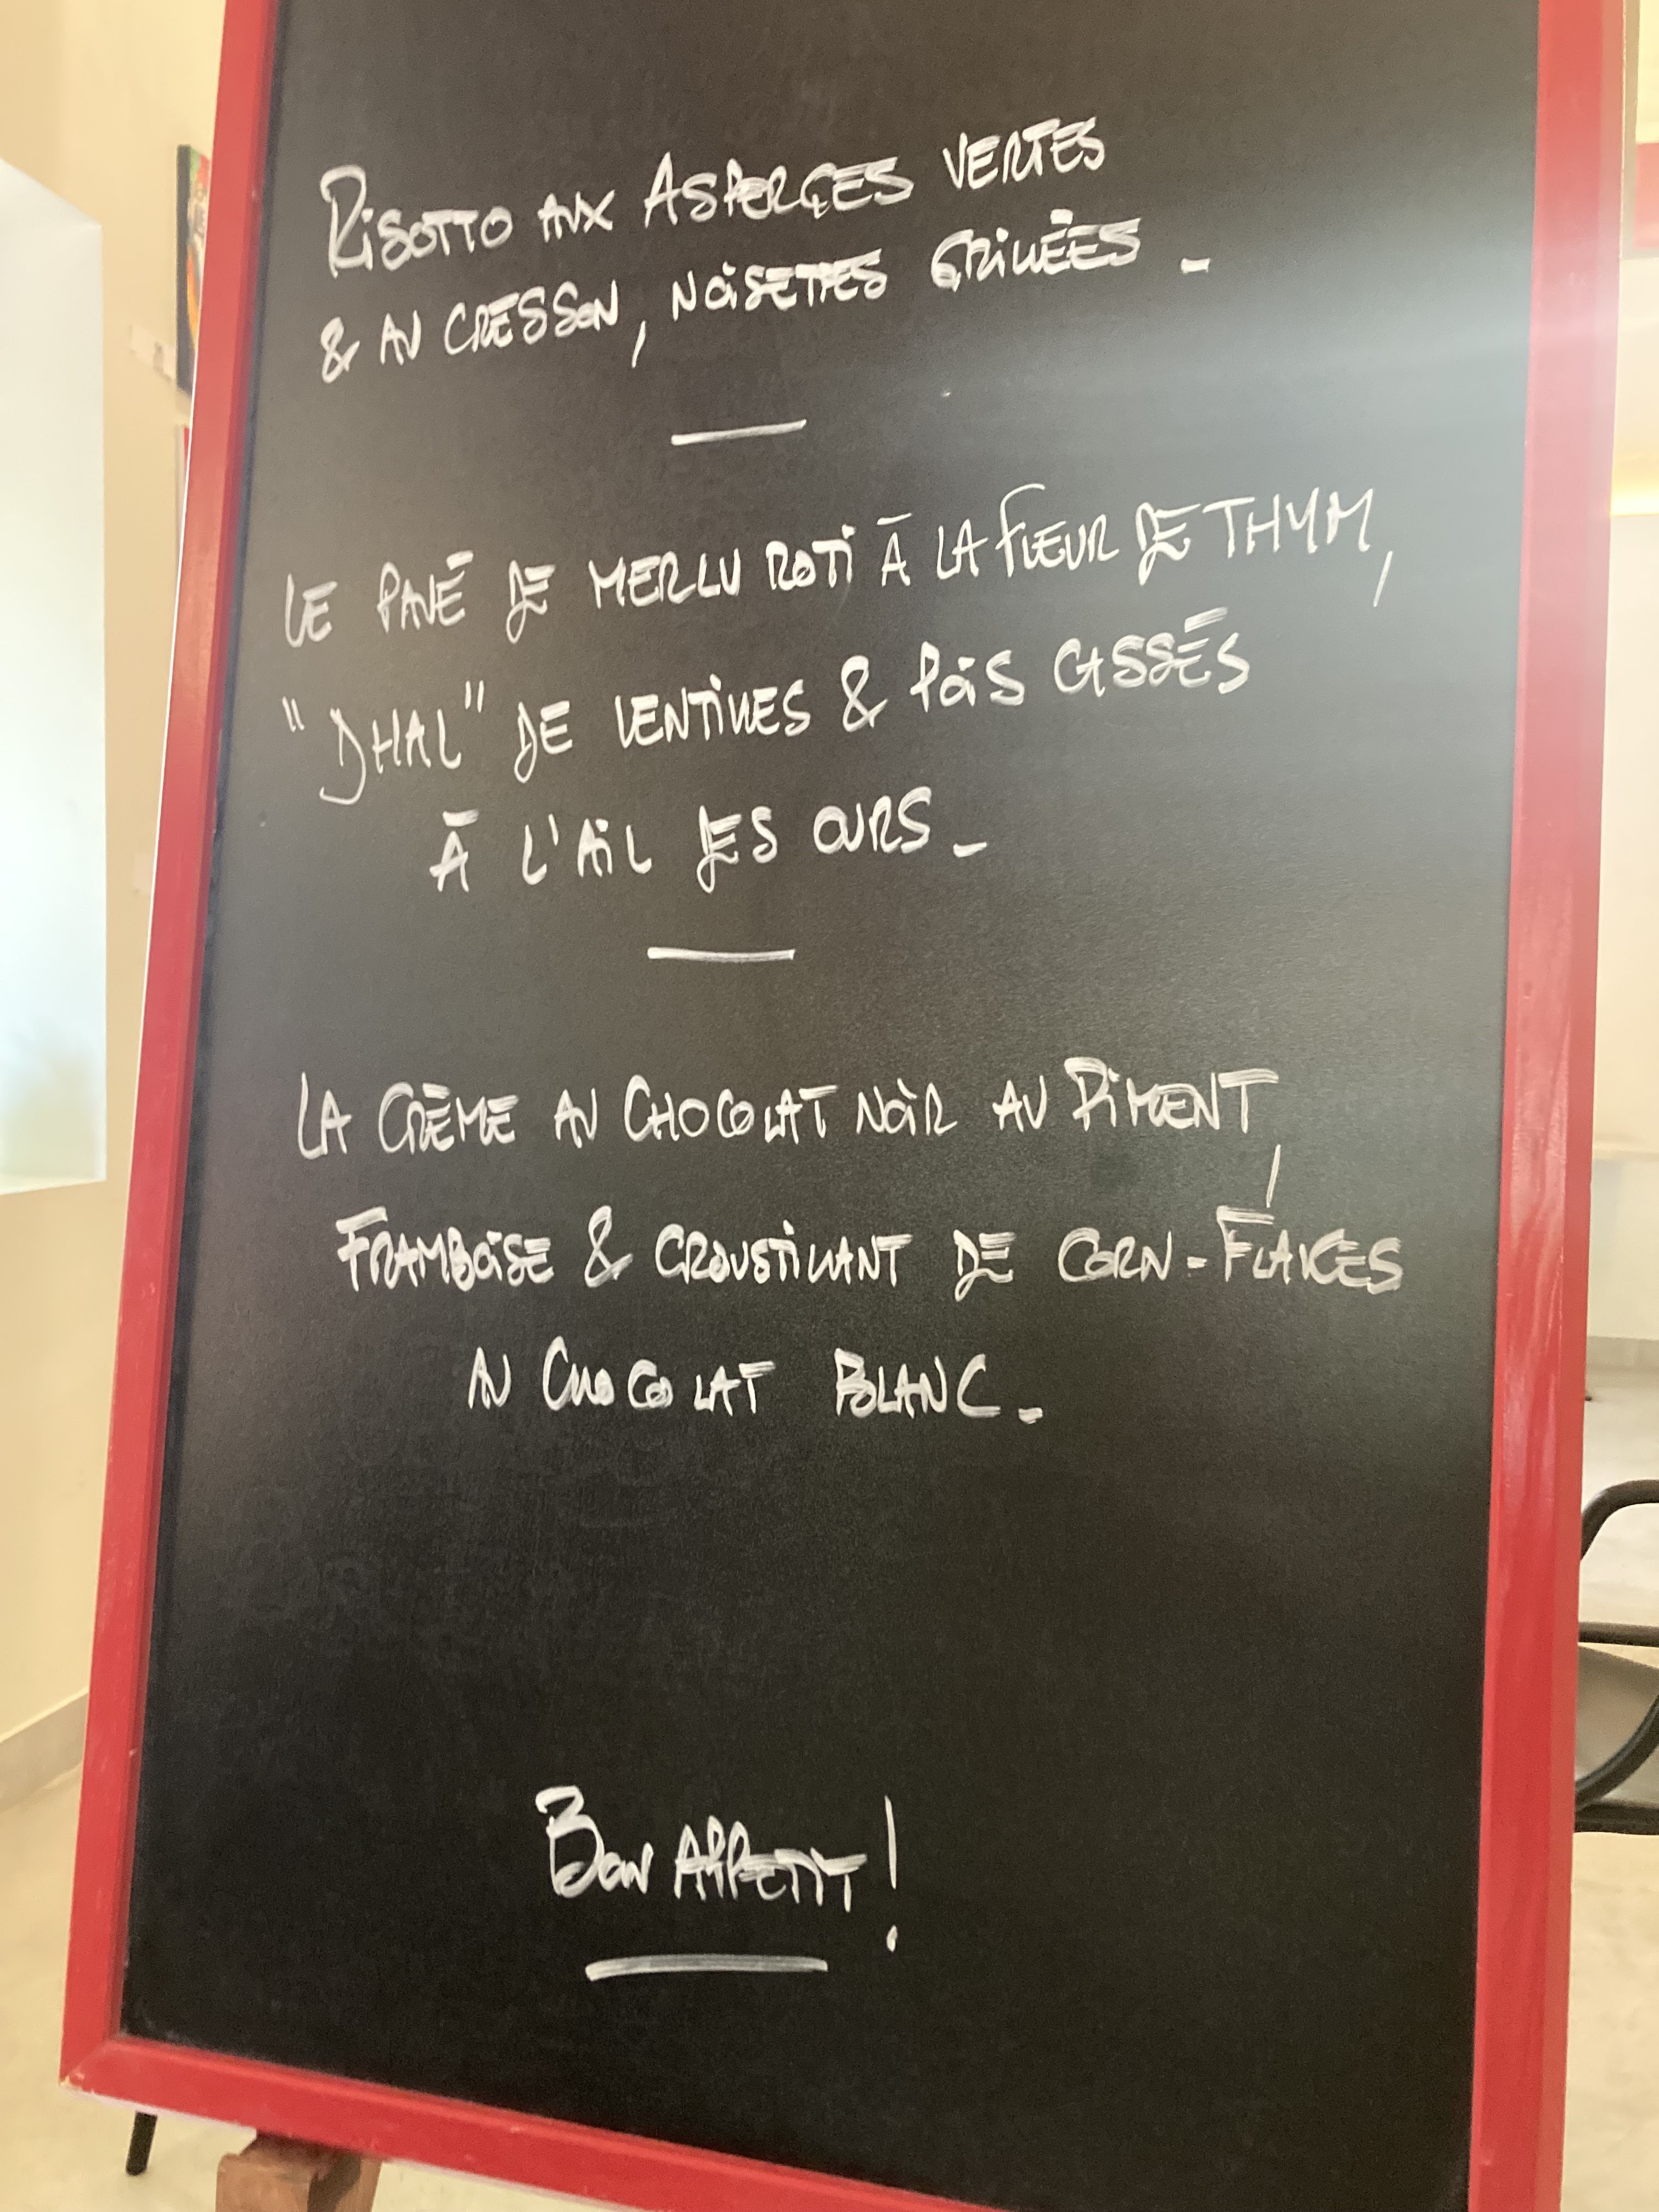 RiSOTTO AUX ASPERGES VERTES
& AU CRESSON, NOiSETTES GRiLLÉES -
LE PAVÉ DE MERLU ROTi À LA FLEUR DE THYM,
"DHAL" DE LENTiLLES & POiS CASSÉS
À L'AiL DES OURS -
LA CRÈME AU CHOCOLAT NOiR AU PiMENT,
FRAMBOiSE & CROUSTiLLANT DE CORN-FLAKES
AU CHOCOLAT BLANC -
BON APPETIT !